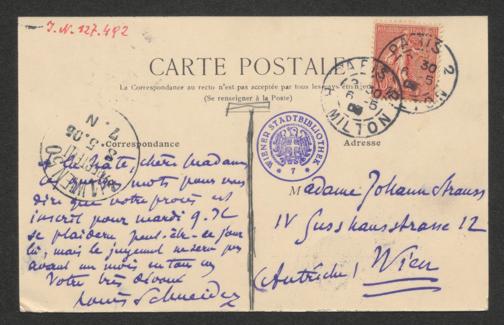 I.N. 127.492
CARTE POSTALE
La Correspondance au recto n'est pas acceptée par tous les pays étrangers
(Se renseigner à la Poste)
Correspondance
Adresse
PARIS
MILTON
WIENER STADTBIBLIOTHEK
7
WIEN
En hâte, chère Madame,
ces mots pour vous
dire que votre procès est
inscrit pour mardi 9. Il
se plaidera peut-être ce jour
là, mais le jugement ne sera pas
avant un mois en tous cas
Votre très dévoué
Louis Schneider
M
Madame Johann Strauss
IV Gusshausstrasse 12
(Autriche) Wien